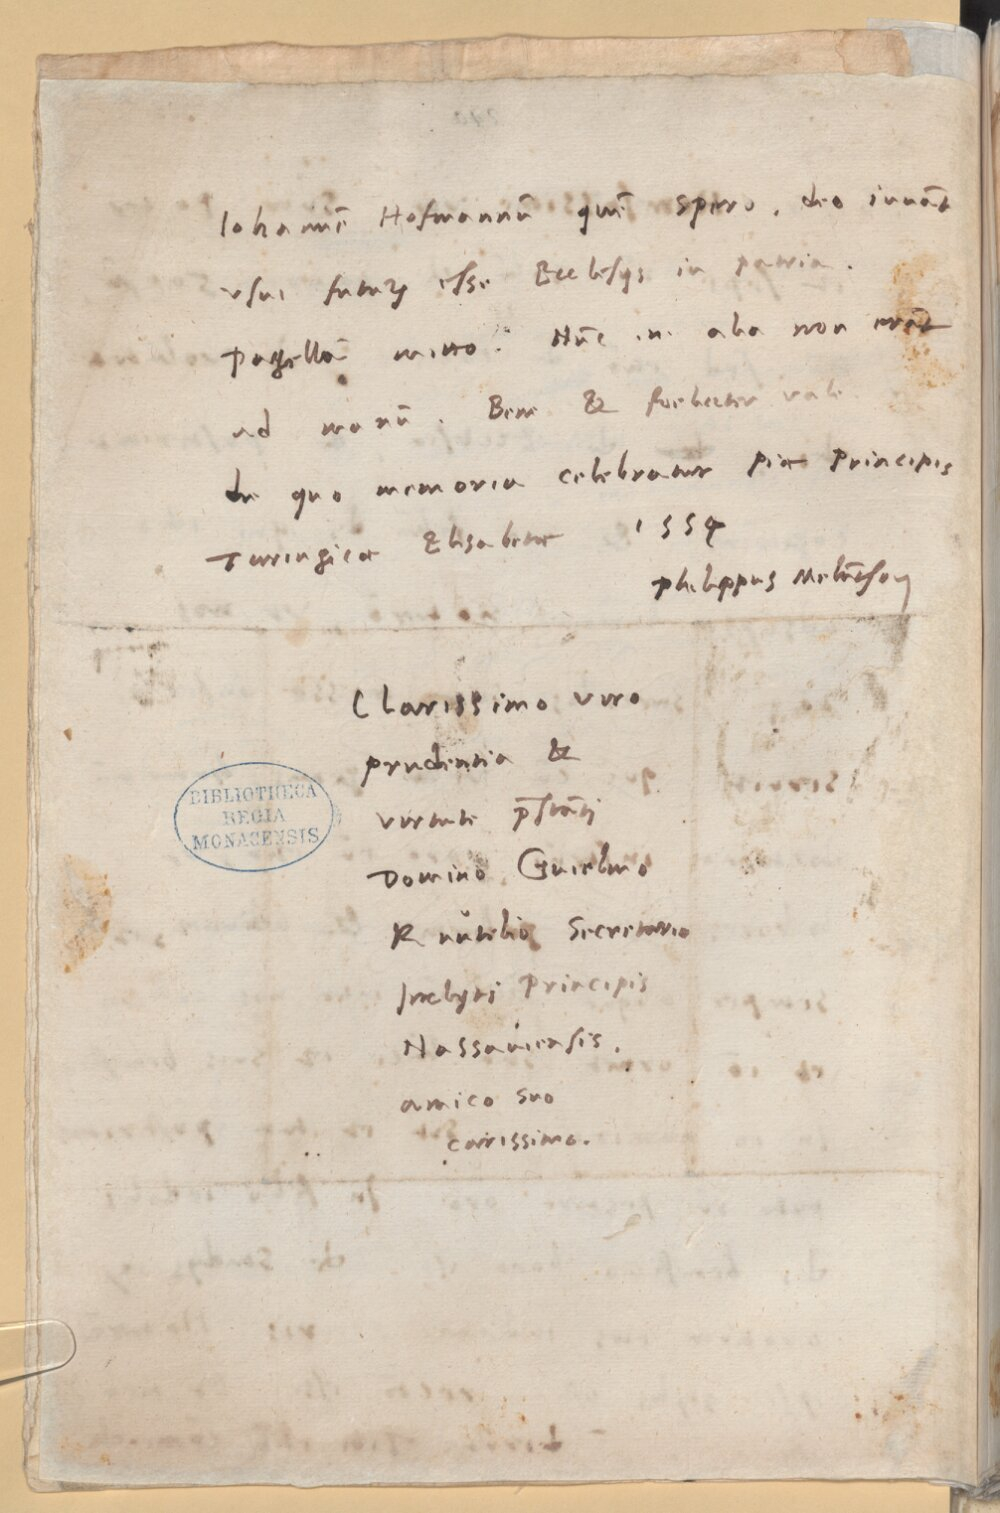 Iohannē Hofmannū quē spero, deo iuuāte
vsui futurū esse Ecclesijs in patria.
Pagellā mitto. Nūc .n. alia non erāt
ad manū. Bene & foeliciter vale
die quo memoria celebratur piae Principis
Turingicae Elisabetae 1554
philippus Melāthon
Clarissimo viro
prudentia &
virtute p̄stāti
Domino Guielmo
Knŭtelio Secretario
Inclyti Principis
Nassauiensis.
amico suo
carissimo.
BIBLIOTHECA
REGIA
MONACENSIS